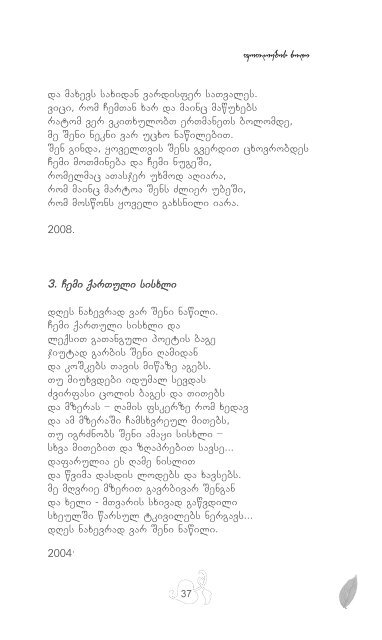 და მახევს სახიდან ვარდისფერ სათვალეს.
ვიცი, რომ ჩემთან ხარ და მაინც მაწუხებს
რატომ ვერ ვკითხულობთ ერთმანეთს ბოლომდე,
მე შენი ნეკნი ვარ უცხო ნაწილებით.
შენ გინდა, ყოველთვის შენს გვერდით ცხოვრობდეს
ჩემი მოთმინება და ჩემი ნუგეში,
რომელმაც ათასჯერ უხმოდ აღიარა,
რომ მაინც მარტოა შენს ძლიერ უბეში,
რომ მოსწონს ყოველი გახსნილი იარა.
2008.
3. ჩემი ქართული სისხლი
დღეს ნახევრად ვარ შენი ნაწილი.
ჩემი ქართული სისხლი და
ლექსით გათანგული პოეტის ბაგე
ჯიუტად გარბის შენი ღამიდან
და კოშკებს თავის მიწაზე აგებს.
თუ მიუხვდები იდუმალ სევდას
ძვირფასი ცოლის ბაგეს და თითებს
და მზერას – ღამის ფსკერზე რომ ხედავ
და ამ მზერაში ჩამსხვრეულ მითებს,
თუ იგრძნობს შენი ამაყი სისხლი –
სხვა მითებით და ზღაპრებით სავსე...
დაფარულია ეს ღამე ნისლით
და წვიმა დასდის ლოდებს და ხავსებს.
მე მღვრიე მზერით გავრბივარ შენგან
და ხელი - მთვარის სხივად გაწვდილი
სხეულში წარსულ ტკივილებს ნერგავს...
დღეს ნახევრად ვარ შენი ნაწილი.
2004
37